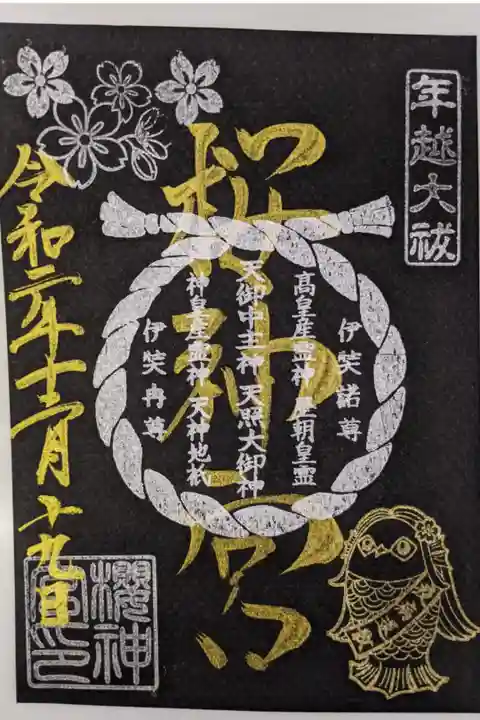 年越大祓
桜神宮
伊笶諾尊
高皇産霊神 歴朝皇霊
天御中主神 天照大御神
神皇産霊神 天神地祇
伊笶冉尊
令和二年十二月十九日
櫻神宮印